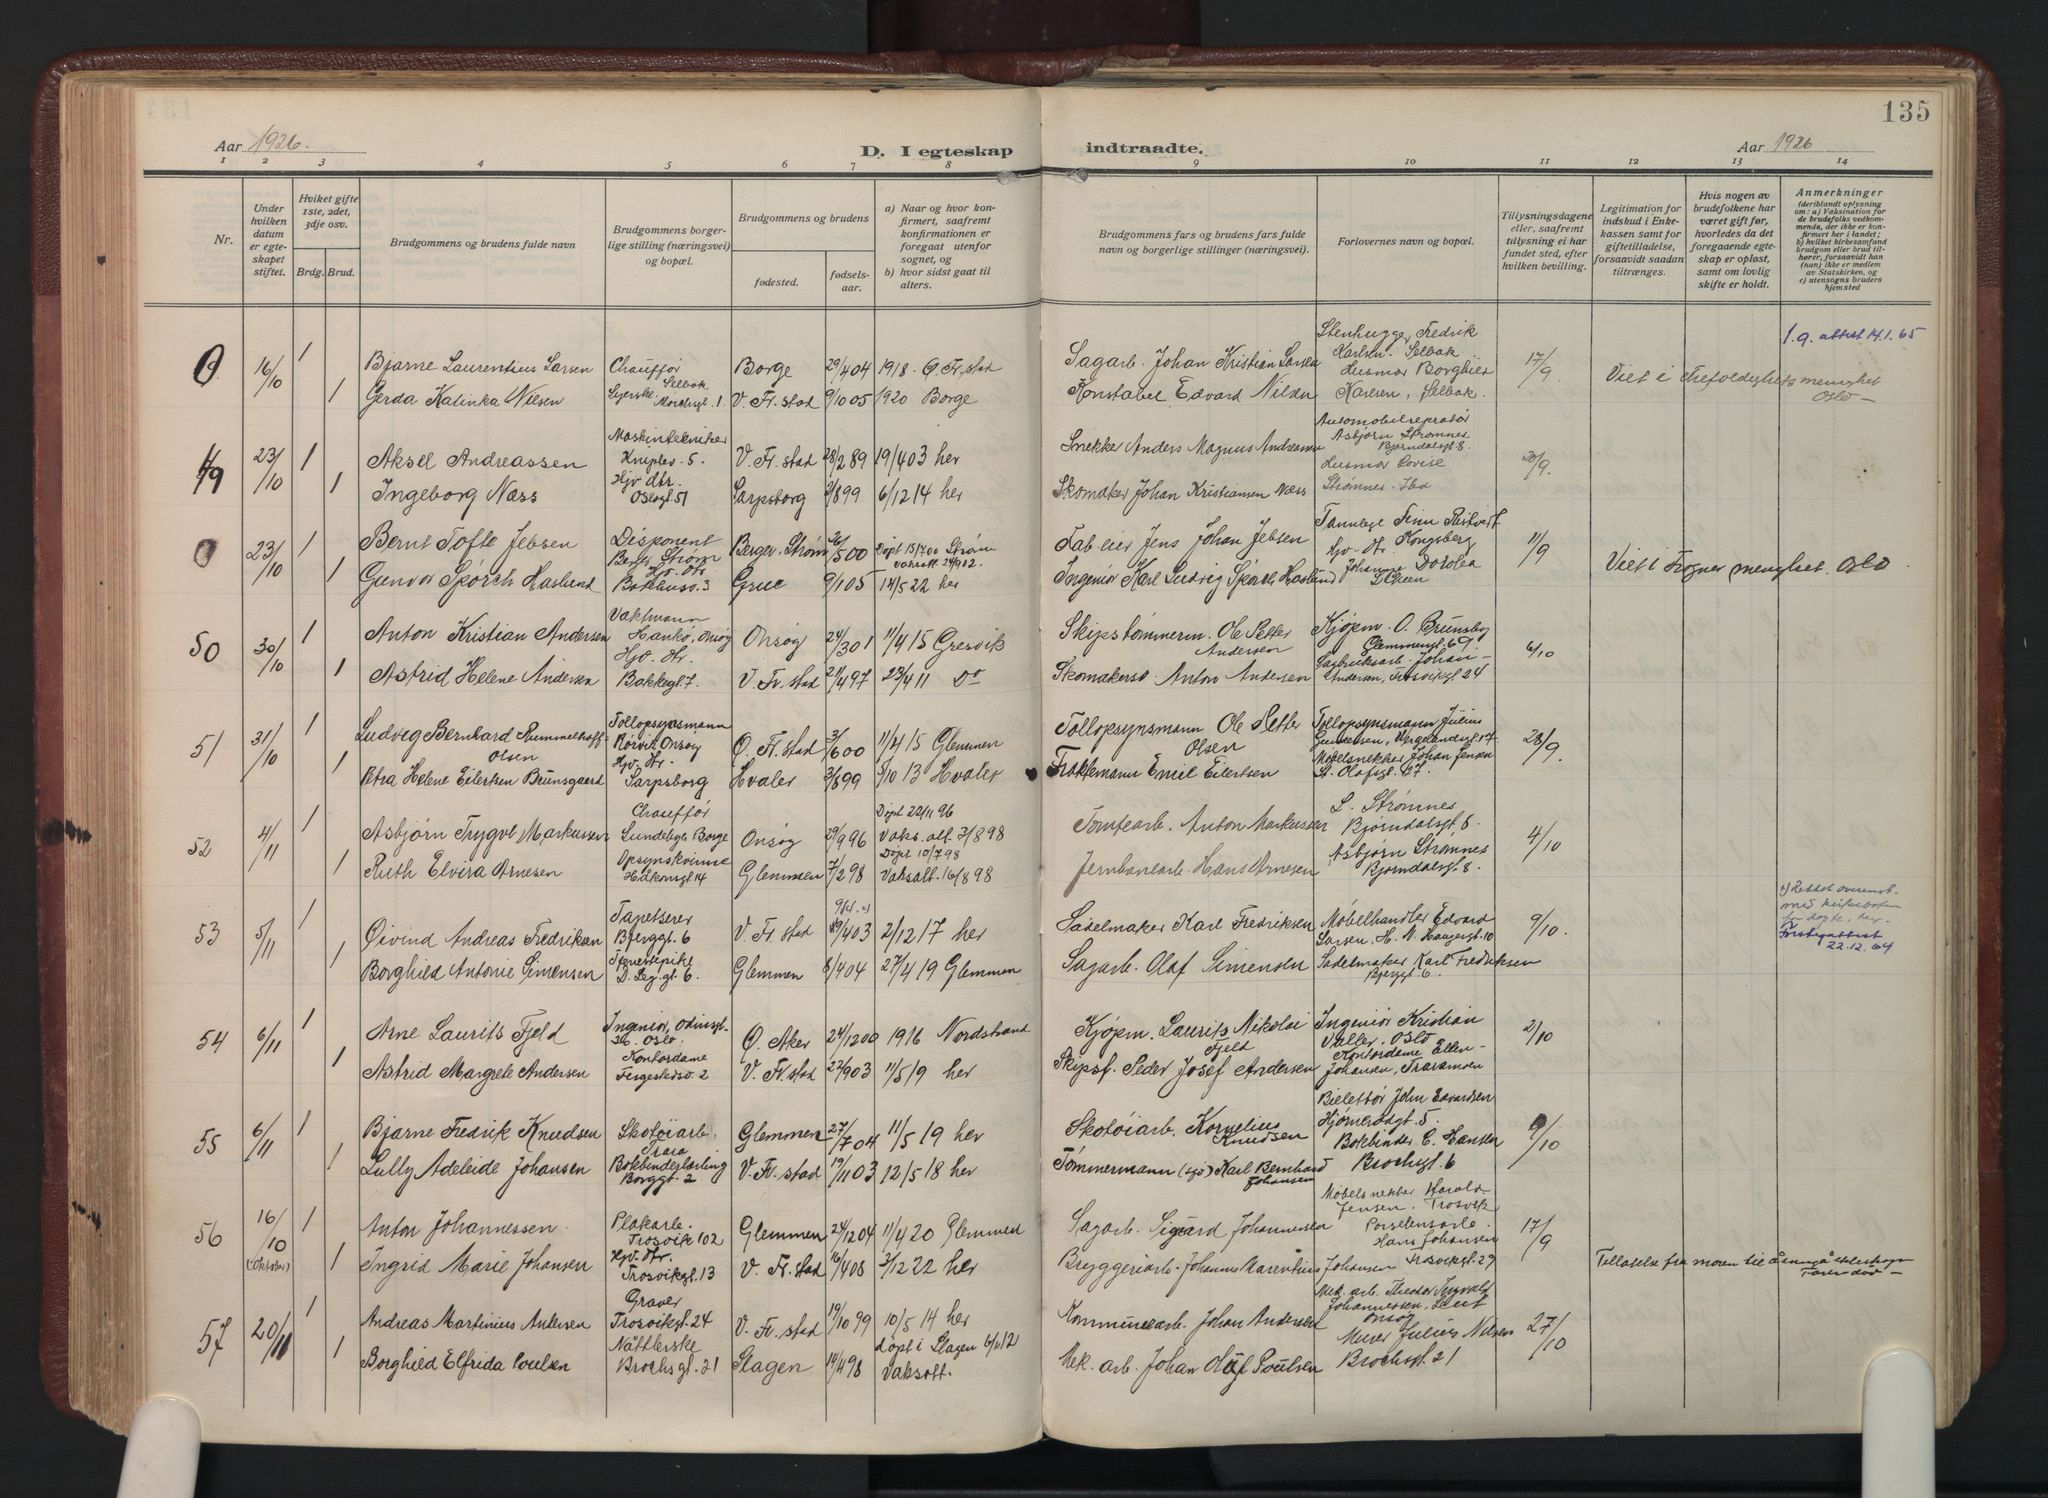 135
Aar 1926.
D. I egteskap
indtraadte.
Aar 1926
1 2 3 4 5 6 7 8 9 10 11 12 13 14
Nr.
Under hvilken datum er egteskapet stiftet.
Hviket gifte 1ste, 2det, 3dje osv.
Brdg. Brud.
Brudgommens og brudens fulde navn
Brudgommens borgerlige stilling (næringsvei) og bopæl.
Brudgommens og brudens
fødested.
fødselsaar.
a) Naar og hvor konfirmert, saafremt konfirmationen er foregaat utenfor sognet, og
b) hvor sidst gaat til alters.
Brudgommens fars og brudens fars fulde navn og borgerlige stillinger (næringsvei).
Forlovernes navn og bopæl.
Tillysningsdagene eller, saafremt tillysning ei har fundet sted, efter hvilken bevilling.
Legitimation for indskud i Enkekassen samt for giftetilladelse, forsaavidt saadan tiltrænges.
Hvis nogen av brudefolkene har været gift før, hvorledes da det foregaaende egteskap er opløst, samt om lovlig skifte er holdt.
Anmerkninger
(deriblandt oplysning om: a) Vaksination for de brudefolks vedkommende, der ikke er konfirmert her i landet; b) hvilket kirkesamfund brudgom eller brud tilhører, forsaavidt han (hun) ikke er medlem av Statskirken, og c) utensogns bruders hjemsted
0 16/10 1 Bjarne Laurentius Larsen Chauffør Selbak Borge 29/4 04 1918 - Ø. Fr.stad Sagarb. Johan Kristian Larsen Stenhugger Fredrik Karlsen. Selbak 17/9 Viet i Trefoldighets menighet Oslo - 1.g. attest 14.1.65
1 Gerda Kalinka Nilsen V. Fr.stad 9/10 05 1920 Borge Konstabel Edvard Nilsen Husmor Borghild Karlsen, Selbak.
49 23/10 1 Aksel Andreassen Maskintekniker V. Fr.stad 28/2 89 19/4 03 her Snekker Anders Magnus Andreassen Automobilreparatør Asbjørn Strømnes Bjørndalsgt 8. 20/9.
1 Ingeborg Næss Hjv. dtr. Oslogt 51 Sarpsborg 99 6/12 14 her Skomaker Johan Kristiansen Næss Husmor Lovise Strømnes. Ibid
0 23/10 1 Bernt Tofte Jebsen Disponent Berger, Strøm Berger. Strøm 5 00 Døpt 15/7 00 Strøm vaksatt 24/9 12. Fab. eier Jens Johan Jebsen Tannlege Finn Kongsberg 11/9 Viet i Frogner menighet. Oslo.
1 Gunvor Spørck Haslund Hjv. dtr. Grue 9/1 05 14/5 22 her Ingeniør Karl Ludvig Spørck Haslund Hjv. dtr. Johanne Dorotea
50 30/10 1 Anton Kristian Andersen Vaktmann Hankø, Onsøy Onsøy 24/3 01 11/4 15 Gresvik Skipstømmerm. Ole Petter Andersen Kjøpm. O. Brunsby Glemmengt. 69. 6/10
1 Astrid Helene Andersen Hjv. dtr. Bakkegt 7. V. Fr.stad 21/4 97 23/4 11 Do Skomakersv. Anton Andersen Sagbruksarb. Johan Andersen, Trosvikgt 24
51 31/10 1 Ludvig Bernhard Rummelhoff Olsen Tollopsynsmann Rørvik Onsøy Ø. Fr.stad 3/6 00 11/4 15 Glemmen Tollopsynsmann Ole Petter Olsen Tollopsynsmann Julius Gundersen, Vergelandsgt 14 28/9.
1 Petra Helene Eilertsen Brunsgaard Hjv. dtr. Sarpsborg Hvaler 3/8 99 5/10 13 Hvaler Fraktemann Emil Eilertsen Møbelsnekker Johan Jensen St. Olafsgt. 67.
52 4/11 1 Asbjørn Trygve Markussen Chauffør Lundeby Borge Onsøy 29/9 96 Døpt 22/11 96 Vaks. att. 7/8 98 Tomtearb. Anton Markussen L. Strømnes Bjørndalsgt. 8. 4/10
1 Ruth Elvira Arnesen Opsynskvinne Håkonsgt 14 Glemmen 7/2 98 Døpt 10/7 98 Vaksatt. 16/8 98 Jernbanearb. Hans Arnesen Asbjørn Strømnes Bjørndalsgt. 8.
53 5/11 1 Øivind Andreas Fredriksen Tapetserer Bjerggt. 6 V. Fr.stad 4 03 2/12 17 her Sadelmaker Karl Fredriksen Møbelhandler Edvard Larsen, H. N. Haugesgt. 10 9/10. Rettet overenst. med kirkeboken for døpte, her. Forts. attest 22.12.64
1 Borghild Antonie Simensen Stenespike D. Leg. gt. 6. Glemmen 8/4 04 27/4 19 Glemmen Sagarb. Olaf Simensen Sadelmaker Karl Fredriksen Bjerggt. 6.
54 6/11 1 Arne Laurits Fjeld Ingeniør, Odinsgt. Oslo Ø. Aker 24/12 00 1916 Nordstrand Kjøpm. Laurits Nikolai Fjeld Ingeniør Kristian Valler. Oslo 2/10
1 Astrid Margrete Andersen Kontordame Fergestedsv. 2 V. Fr.stad 23/9 03 11/5 19 her Skipsf. Peder Josef Andersen Kontordame Ellen Johansen, Traramoen
55 6/11 1 Bjarne Fredrik Knudsen Skotøiarb. Trara Glemmen 27/7 04 11/5 19 her Skotøiarb. Kornelius Knudsen Billettør John Edvardsen Hjørnerødgt. 5. 9/10
1 Lully Adeleide Johansen Bokbinderlærling Borggt. 2 V. Fr.stad 19/11 03 12/5 18 her Tømmermann (sjø) Karl Bernhard Johansen Bokbinder E. Hansen Brochsgt. 6
56 16/10 (Oktober) 1 Anton Johannessen Plakarb. Trosvik 102 Glemmen 24/12 04 11/4 20 Glemmen Sagarb. Sigvard Johannessen Møbelsnekker Harald Jensen. Trosvik 17/9
1 Ingrid Marie Johansen Hjv. dtr. Trosvikgt. 13 V. Fr.stad 16/4 08 3/12 22 her Bryggeriarb. Johannes Marentius Johansen Porselensarb. Hans Johansen Trosvikgt. 29 Tillatelse fra moren til å inngå ekteskap Faren død -
57 20/11 1 Andreas Martinius Andersen Graver Trosvikgt. 24 V. Fr.stad 19/10 99 10/5 14 her Kommunearb. Johan Andersen Mek. arb. Theodor Ingvald Johannessen, Onsøy 27/10
1 Borghild Elfrida Poulsen Nåtlerske Brochsgt. 21 Slagen 14/4 98 døpt i Slagen Vaksatt. Mek. arb. Johan Oluf Poulsen Murer Julius Nilsen Brochsgt. 21